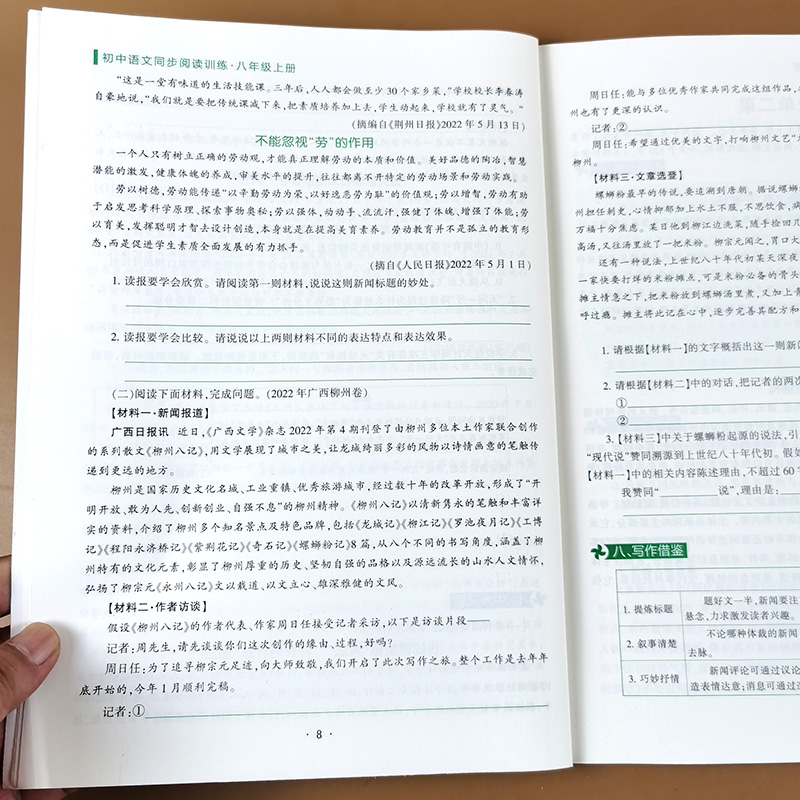 初中语文同步阅读训练·八年级上册
“这是一堂有味道的生活技能课。三年后,人人都会做至少30个家乡菜,”学校校长李春涛
自豪地说,“我们就是要把传统课减下来,把素质培养加上去,学生动起来,学校就有了灵气。”
(摘编自《荆州日报》2022年5月13日)
不能忽视“劳”的作用
一个人只有树立正确的劳动观,才能真正理解劳动的本质和价值。美好品德的陶冶,智慧
潜能的激发,健康体魄的养成,审美水平的提升,往往都离不开特定的劳动场景和劳动实践。
劳以树德,劳动能传递“以辛勤劳动为荣、以好逸恶劳为耻”的价值观;劳以增智,劳动有助
于启发思考科学原理、探索事物奥秘;劳以强体,动动手、流流汗,强健了体魄、增强了体能;劳
以育美,发挥聪明才智去设计创造,本身就是在提高美育素养。劳动教育并不是孤立的教育形
态,而是促进学生素质全面发展的有力抓手。
(摘自《人民日报》2022年5月1日)
1. 读报要学会欣赏。请阅读第一则材料,说说这则新闻标题的妙处。
2. 读报要学会比较。请说说以上两则材料不同的表达特点和表达效果。
(二)阅读下面材料,完成问题。(2022年广西柳州卷)
【材料一·新闻报道】
广西日报讯 近日,《广西文学》杂志2022年第4期刊登了由柳州多位本土作家联合创作
的系列散文《柳州八记》,用文学展现了城市之美,让龙城绮丽多彩的风物以诗情画意的笔触传
递到更远的地方。
柳州是国家历史文化名城、工业重镇、优秀旅游城市,经过数十年的改革开放,形成了“开
明开放、敢为人先、创新创业、自强不息”的柳州精神。《柳州八记》以清新隽永的笔触和丰富详
实的资料,介绍了柳州多个知名景点及特色品牌,包括《龙城记》《柳江记》《罗池夜月记》《工博
记》《程阳永济桥记》《紫荆花记》《奇石记》《螺蛳粉记》8篇,从八个不同的书写角度,涵盖了柳
州特有的文化元素,彰显了柳州厚重的历史、坚韧自强的品格以及源远流长的山水人文情怀,
弘扬了柳宗元《永州八记》文以载道、以文立心、雄深雅健的文风。
【材料二·作者访谈】
假设《柳州八记》的作者代表、作家周日任接受记者采访,以下是访谈片段——
记者:周先生,请先谈谈你们这次创作的缘由、过程,好吗?
周日任:为了追寻柳宗元足迹,向大师致敬,我们开启了此次写作之旅。整个工作是去年年
底开始的,今年1月顺利完稿。
记者:①
·8·
周日任:能与多位优秀作家共同完成这组作品,
州也有了更深的认识。
记者:②
周日任:希望通过优美的文字,打响柳州文艺“
柳州。
【材料三·文章选登】
螺蛳粉最早的传说,要追溯到唐朝。据说螺蛳
州担任刺史,心情抑郁加上水土不服,不思饮食,病
万福十分焦虑。某日他到柳江边洗菜,随手捡回几
高汤,又往汤里放了一把米粉。柳宗元闻之,胃口大
还有一种说法,上世纪八十年代初某天深夜
一家快要打烊的米粉摊点,可是米粉必备的骨头
摊主情急之下,把米粉放到螺蛳汤里煮,又加上青
呼过瘾。摊主将此记在心中,逐步完善其配方和
1. 请根据【材料一】的文字概括出这一则新闻
2. 请根据【材料二】中的对话,把记者的两次
①
②
3. 【材料三】中关于螺蛳粉起源的说法,引
“现代说”赞同溯源到上世纪八十年代初。假如
【材料一】中的相关内容陈述理由,不超过60字
我赞同“ 说”,理由是:
八、写作借鉴
1. 提炼标题
题好文一半,新闻要注
悬念,力求激发读者兴趣。
2. 叙事清楚
不论哪种体裁的新闻
去脉。
3. 巧妙抒情
新闻评论可通过议论
造表情达意;消息可通过